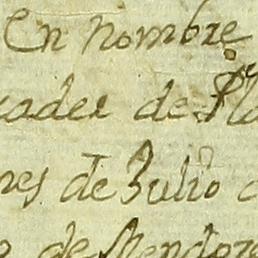 En nombre
cader de Pla
nes de Julio
de Mendoz